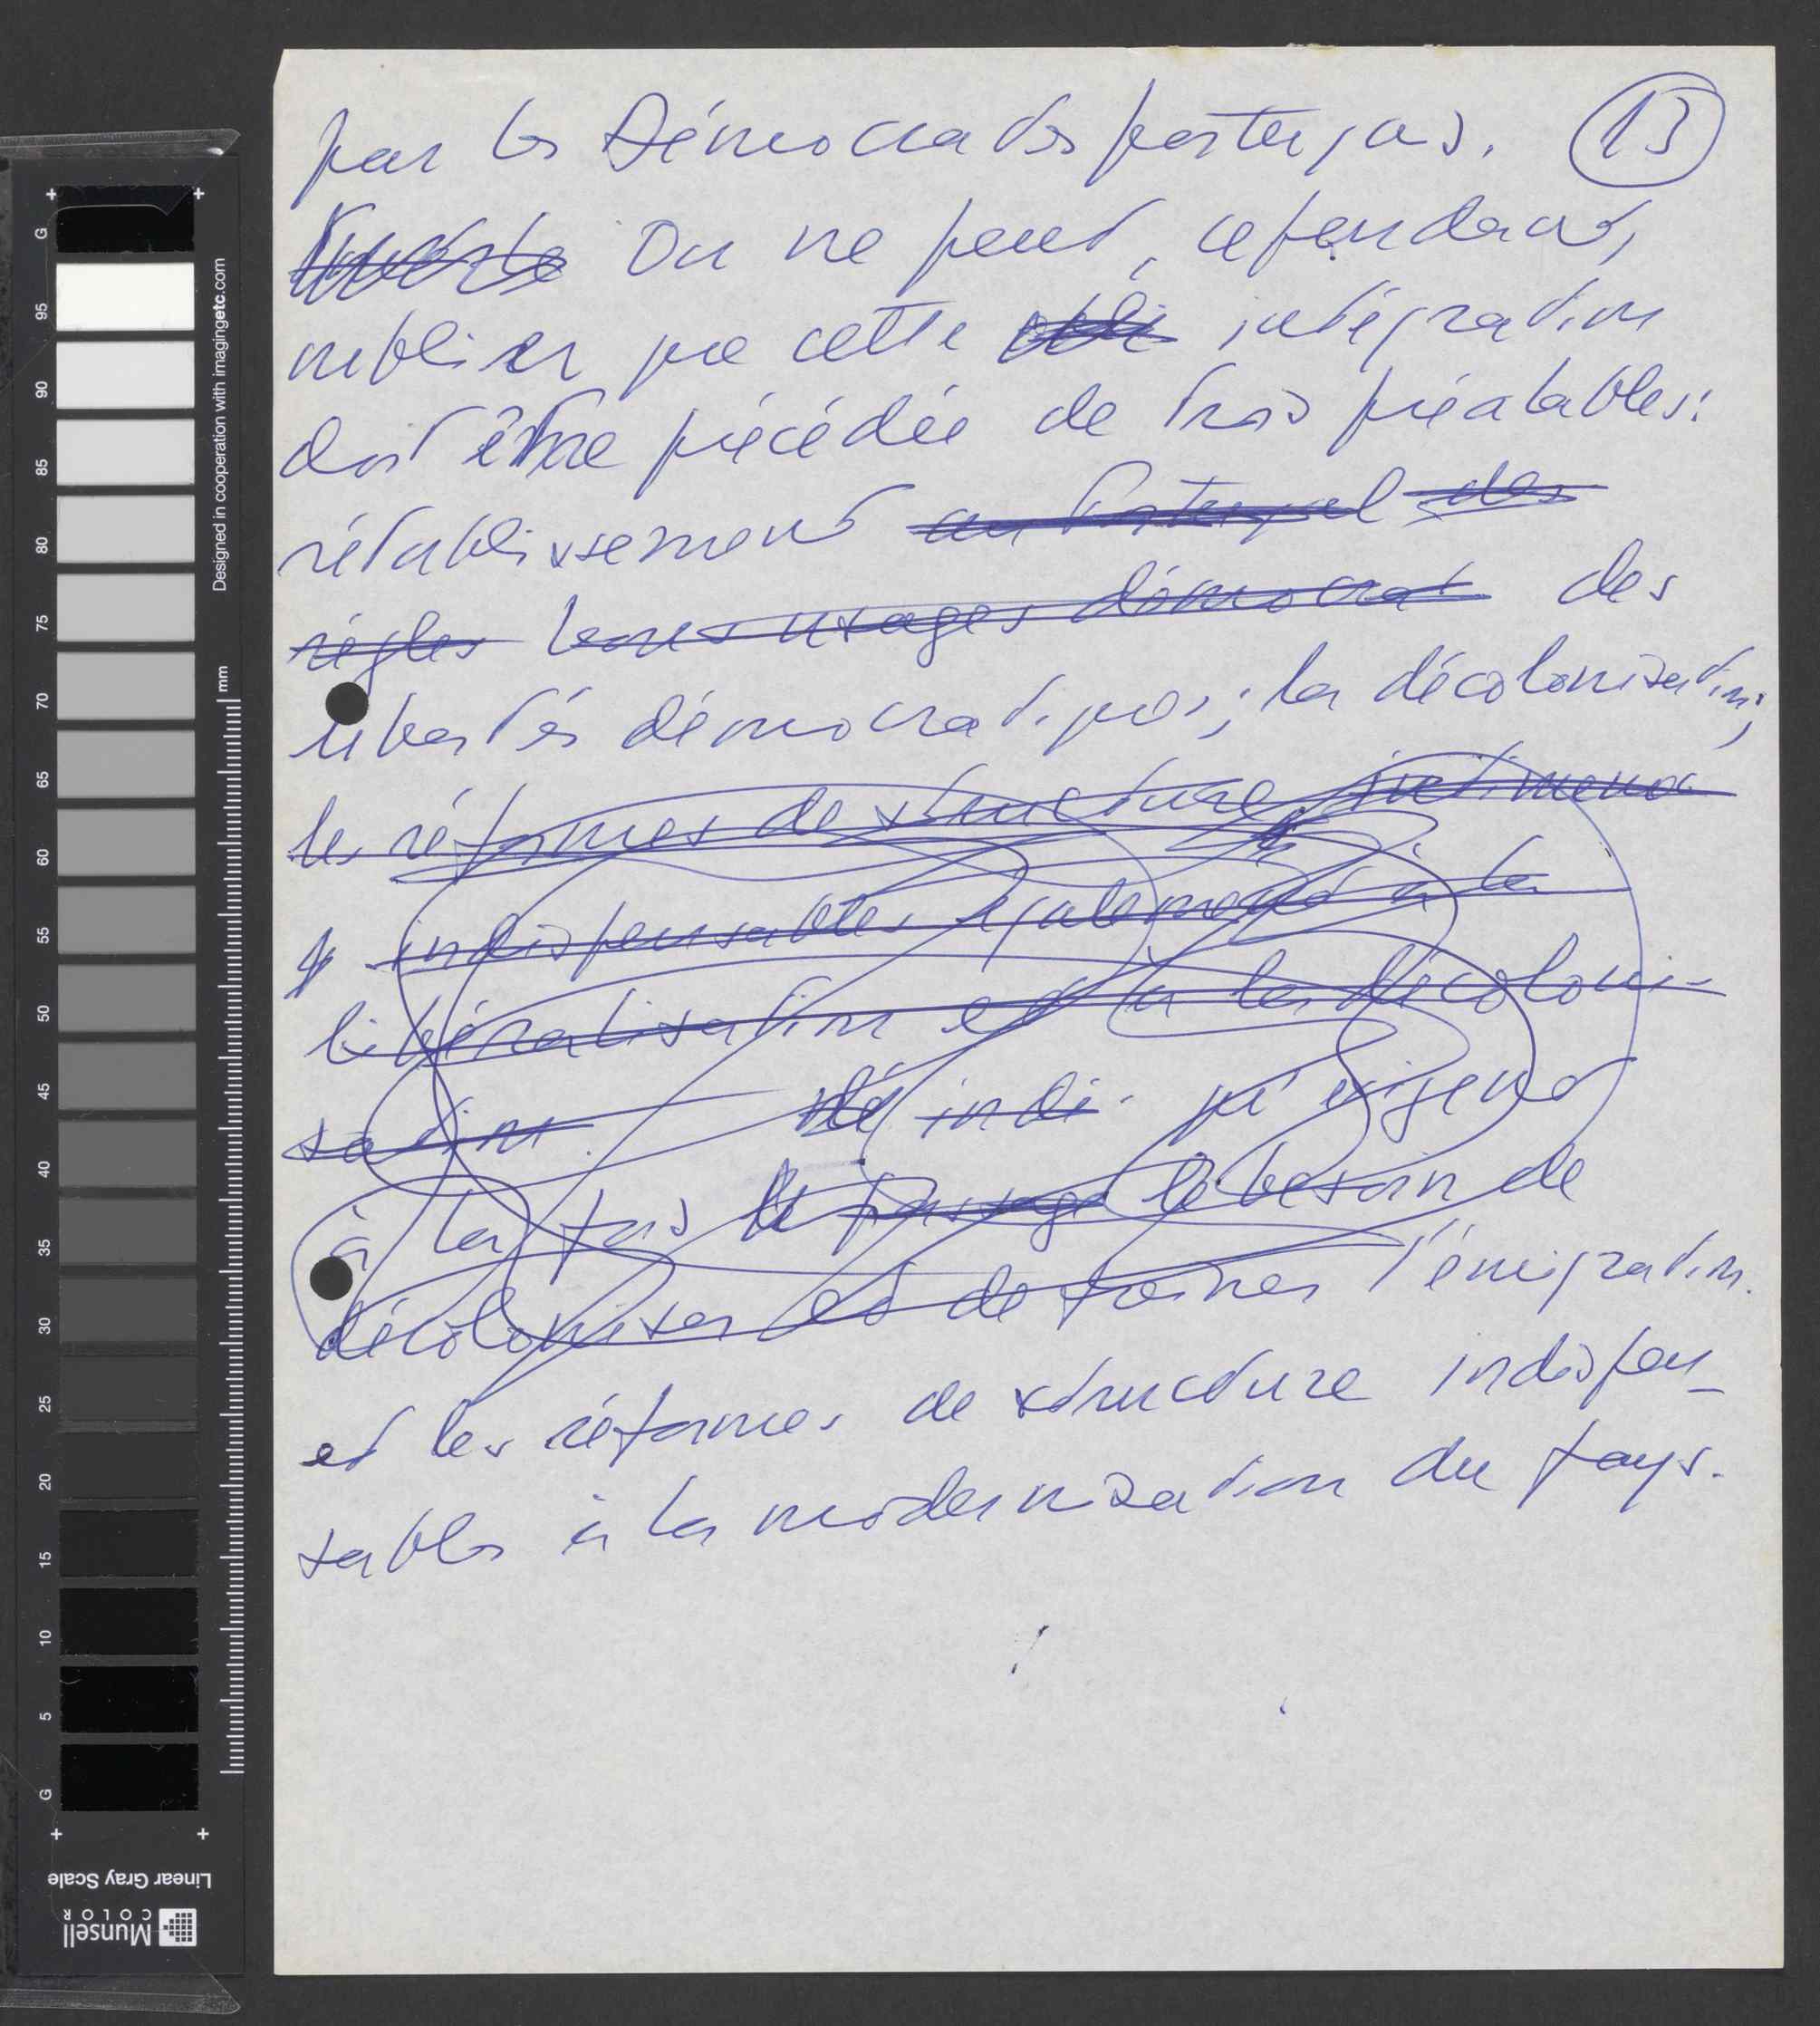 par les Démocrates portugais. 13
On ne peut, cependant,
oublier que cette intégration
doit être précédée de trois préalables:
rétablissement au Portugal des
règles bons usages démocrat des
libertés démocratiques; la décolonisation;
les réformes de structure intimement
indispensables également à la
libéralisation et à la décoloni-
sation. indi qui exigent
à la fois le passage le besoin de
décoloniser et de freiner l'émigration.
et les réformes de structure indispen-
sables à la modernisation du pays.
G
95
90
85
80
75
70
65
60
55
50
45
40
35
30
25
20
15
10
5
G
mm
Designed in cooperation with imagingetc.com
Linear Gray Scale
Munsell
COLOR